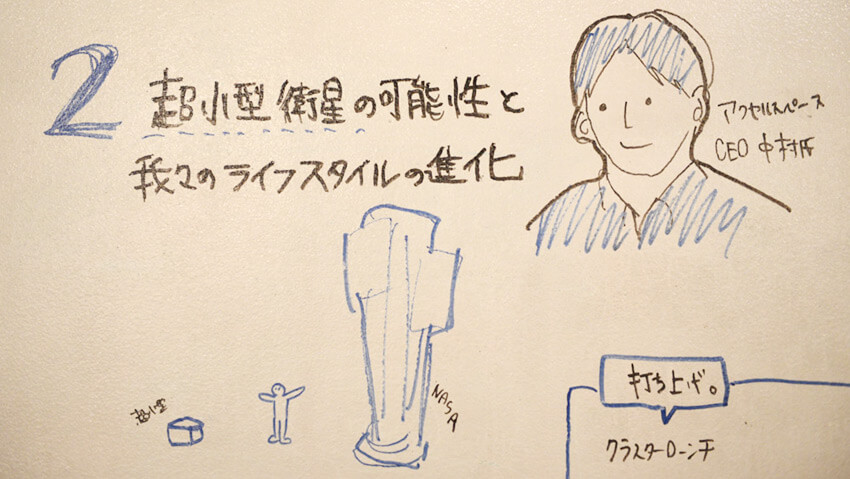 2
超小型衛星の可能性と
我々のライフスタイルの進化
アクセルスペース
CEO 中村氏
超小型
NASA
打ち上げ。
クラスターローンチ